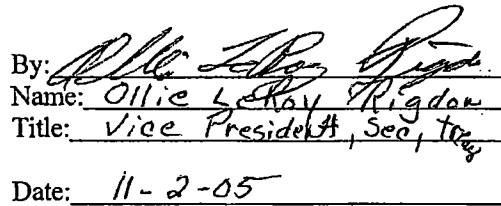 By: Ollie LeRoy Rigdon
Name: Ollie LeRoy Rigdon
Title: Vice President, Sec, Treas
Date: 11-2-05